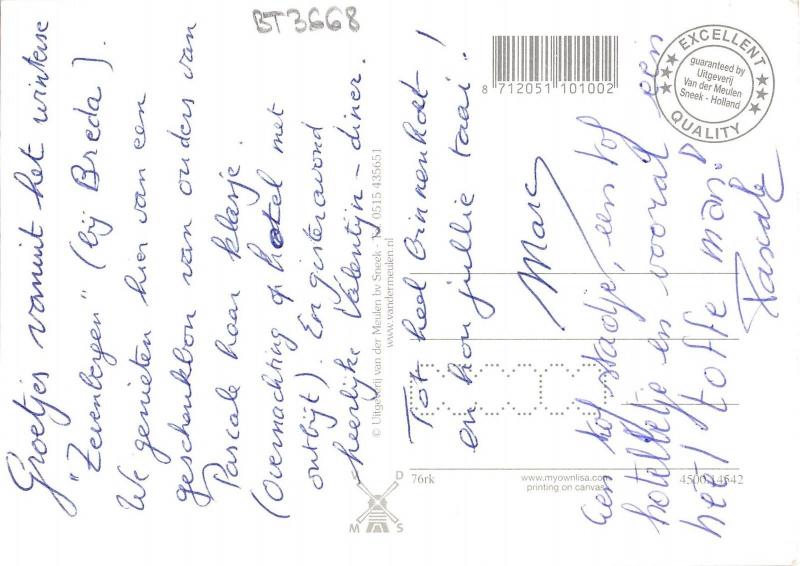 BT3668
Groetjes vanuit het winterse
"Zevenbergen" (bij Breda).
We genieten hier van een
geschenkbon van ouders van
Pascale haar klasje.
(Overnachting op hotel met
ontbijt). En gisteravond
heerlijke Valentijn-diner.
© Uitgeverij van der Meulen bv Sneek - Tel. 0515 435651
www.vandermeulen.nl
D
M S
Tot heel binnenkort
en hou jullie taai!
Marc
Een tof stadje, een tof
hotelletje en vooral een
heel toffe man!
Pascale
8 712051 101002
EXCELLENT
guaranteed by
Uitgeverij
Van der Meulen
Sneek - Holland
QUALITY
76rk
www.myownlisa.com
printing on canvas
4500 14542